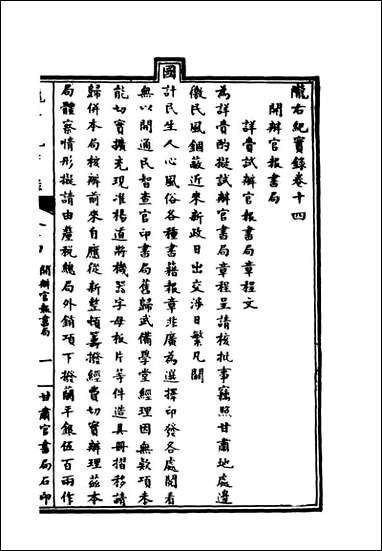 國
隴右紀實錄卷十四
開辦官報書局
詳賫試辦官報書局章程文
為詳賫酌擬試辦官書局章程呈請核批事竊照甘肅地處邊
徼民風錮蔽近來新政日出交涉日繁凡關
國計民生人心風俗各種書籍報章非廣為選擇印發各處閱看
無以開通民智查官印書局舊歸武備學堂經理因無款項未
能切實擴充現准楊道將機器字母板片等件造具冊摺移請
歸併本局核辦前來自應從新整頓籌撥經費切實辦理茲本
局體察情形擬請由釐稅總局外銷項下撥蘭平銀伍百兩作
開辦官報書局
一
甘肅官書局石印